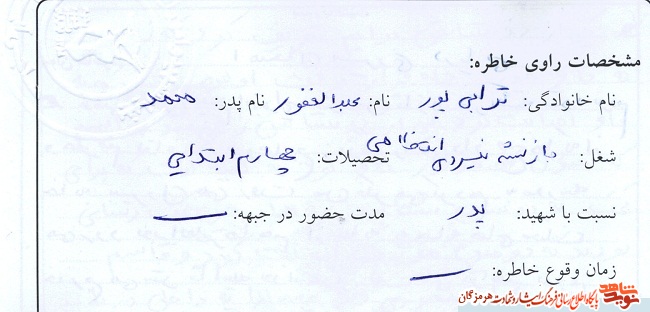 مشخصات راوی خاطره:
نام خانوادگی: ترابی پور نام: عبدالغفور نام پدر: محمد
شغل: بازنشسته نیروی انتظامی تحصیلات: چهارم ابتدایی
نسبت با شهید: پدر مدت حضور در جبهه: ـــ
زمان وقوع خاطره: ـــ
نوید شاهد پایگاه اطلاع رسانی فرهنگ ایثار و شهادت هرمزگان